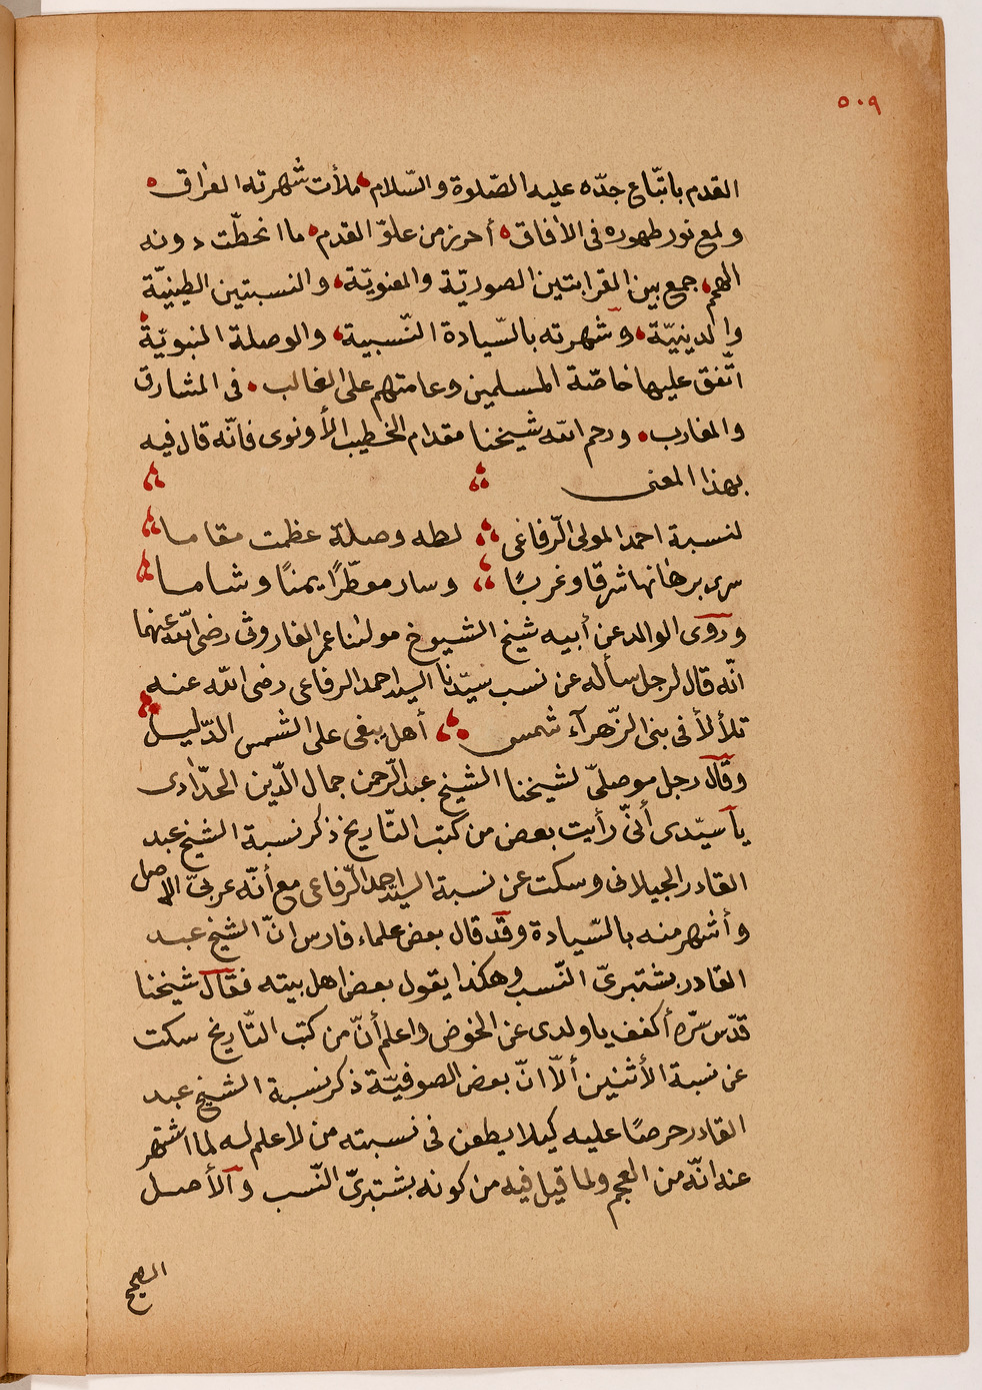 ٥٠٩
القدم باتّباع جدّه عليه الصّلوة والسّلام، ملأت شهرته العراق ه
ولمع نور ظهوره فى الآفاق ه أحرز من علوّ القدم ه ما انحطّت دونه
الهمم، جمع بين القرابتين الصوريّة والمعنويّة، والنسبتين الطينيّة
والدينيّة، وشهرته بالسّيادة النّسبية، والوصلة النبويّة،
اتّفق عليها خاصّة المسلمين وعامتهم على الغالب، فى المشارق
والمغارب، ورحم الله شيخنا مقدام الخطيب الأونوى فانّه قال فيه
بهذا المعنى
لنسبة احمد المولى الرّفاعى ؛ لطه وصلة عظمت مقاما
سرى برهانها شرقا وغربًا ؛ وسار معطّرًا يمنًا وشاما
وروى الوالد عن أبيه شيخ الشيوخ مولٰنا عمر الفاروثى رضى الله عنهما
انّه قال لرجل سأله عن نسب سيّدنا السيد احمد الرفاعى رضى الله عنه
تلألأ فى بنى الزّهرآء شمس ؛ أهل يبغى على الشمس الدّليل
وقال رجل موصلىّ لشيخنا الشيخ عبد الرّحمن جمال الدّين الحدّادى
يا سيّدى أنىّ رأيت بعض من كتب التّاريخ ذكر نسبة الشيخ عبد
القادر الجيلانى وسكت عن نسبة السيد احمد الرّفاعى مع أنّه عربىّ الاصل
وأشهر منه بالسّيادة وقد قال بعض علماء فارس انّ الشيخ عبد
القادر بشتبرىّ النّسب وهكذا يقول بعض اهل بيته فقال شيخنا
قدّس سرّه أكفف يا ولدى عن الخوض واعلم أنّ من كتب التّاريخ سكت
عن نسبة الأثنين ألّا انّ بعض الصوفيّة ذكر نسبة الشيخ عبد
القادر حرصًا عليه كيلا يطعن فى نسبته من لا علم له لما اشتهر
عنه انّه من العجم ولما قيل فيه من كونه بشتبرىّ النّسب والأصل
الصحيح